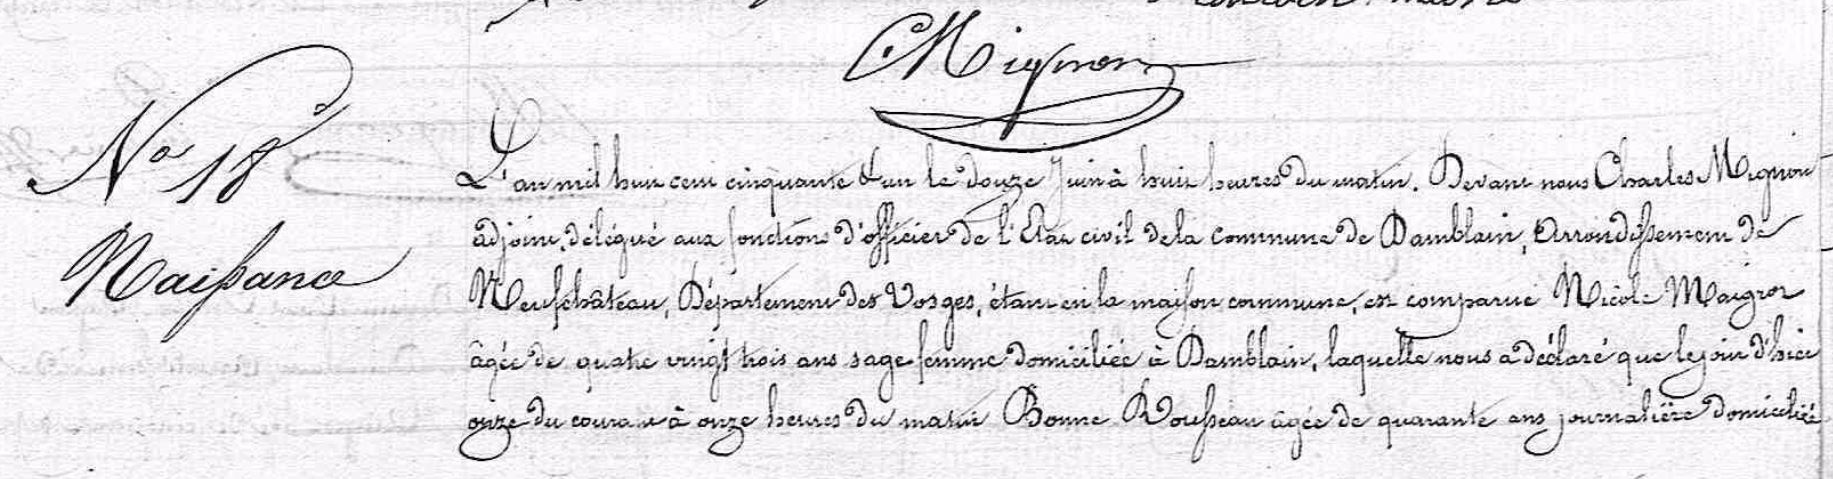 Mignon
Nº 18
Naissance
L'an mil huit cent cinquante & un le douze Juin à huit heures du matin. Devant nous Charles Mignon
adjoint, délégué aux fonctions d'officier de l'Etat civil de la commune de Damblain, Arrondissement de
Neufchâteau, Département des Vosges, étant en la maison commune, est comparue Nicole Maigrot
âgée de quatre vingt trois ans sage femme domiciliée à Damblain, laquelle nous a déclaré que le jour d'hier
onze du courant à onze heures du matin Bonne Rousseau âgée de quarante ans journalière domiciliée